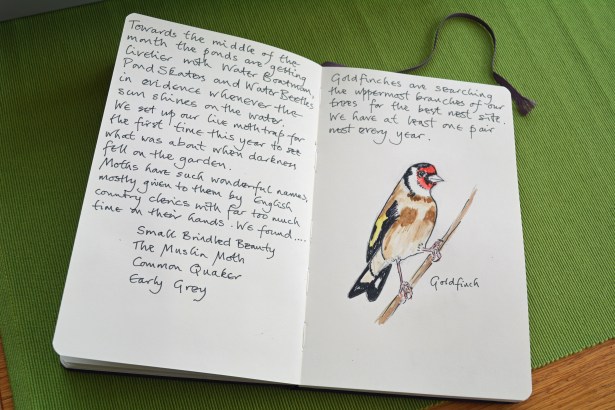 Towards the middle of the
month the ponds are getting
livelier with Water Boatmen,
Pond Skaters and Water Beetles
in evidence whenever the
sun shines on the water.
We set up our live moth trap for
the first time this year to see
what was about when darkness
fell on the garden.
Moths have such wonderful names,
mostly given to them by English
country clerics with far too much
time on their hands. We found....
Small Brindled Beauty
The Muslin Moth
Common Quaker
Early Grey
Goldfinches are searching
the uppermost branches of our
trees for the best nest site.
We have at least one pair
nest every year.
Goldfinch